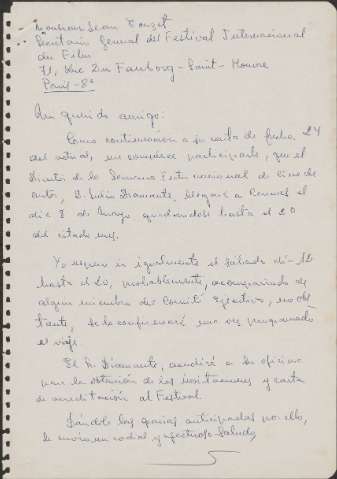 Monsieur Jean Touzet
Secretario General del Festival Internacional
du Film
71, Rue Du Faubourg-Saint-Honore
Paris-8º
Mi querido amigo:
Como continuación a su carta de fecha 24
del actual, me complace participarle, que el
Director de la Semana Internacional de Cine de
autor, D. Julio Diamante, llegará a Cannes el
día 8 de Mayo quedándose hasta el 20
del citado mes.
Yo espero ir igualmente el sábado día 12
hasta el 20, probablemente, acompañado de
algun miembro del Comité Ejecutivo, no obs
tante, se lo confirmaré una vez programado
el viaje.
El Sr. Diamante, acudirá a su oficina
para la obtención de los y carta
de acreditación al Festival.
Dándole las gracias anticipadas por ello,
le envio un cordial y afectuoso saludo,